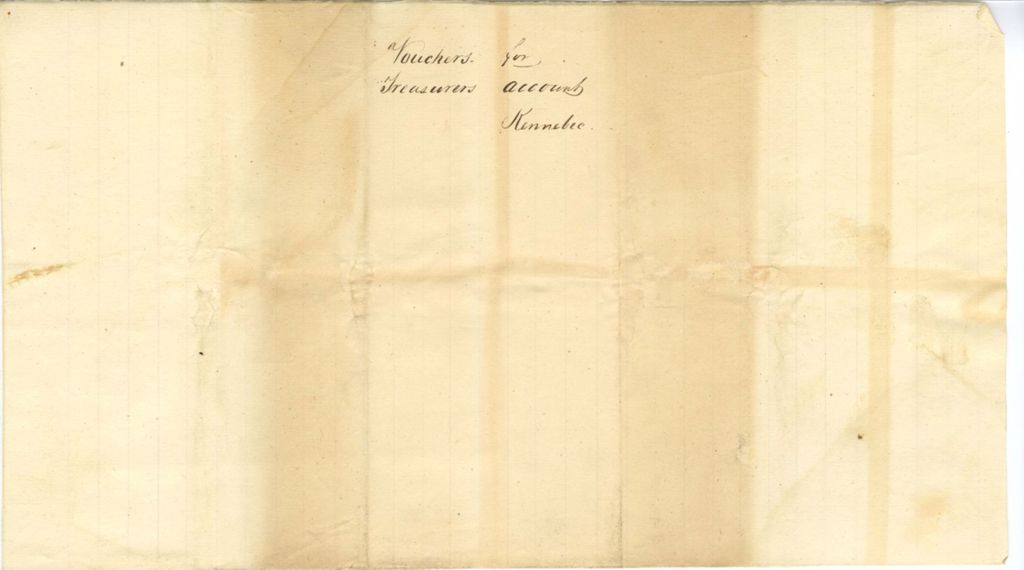 Vouchers. for
Treasurers account
Kennebec.